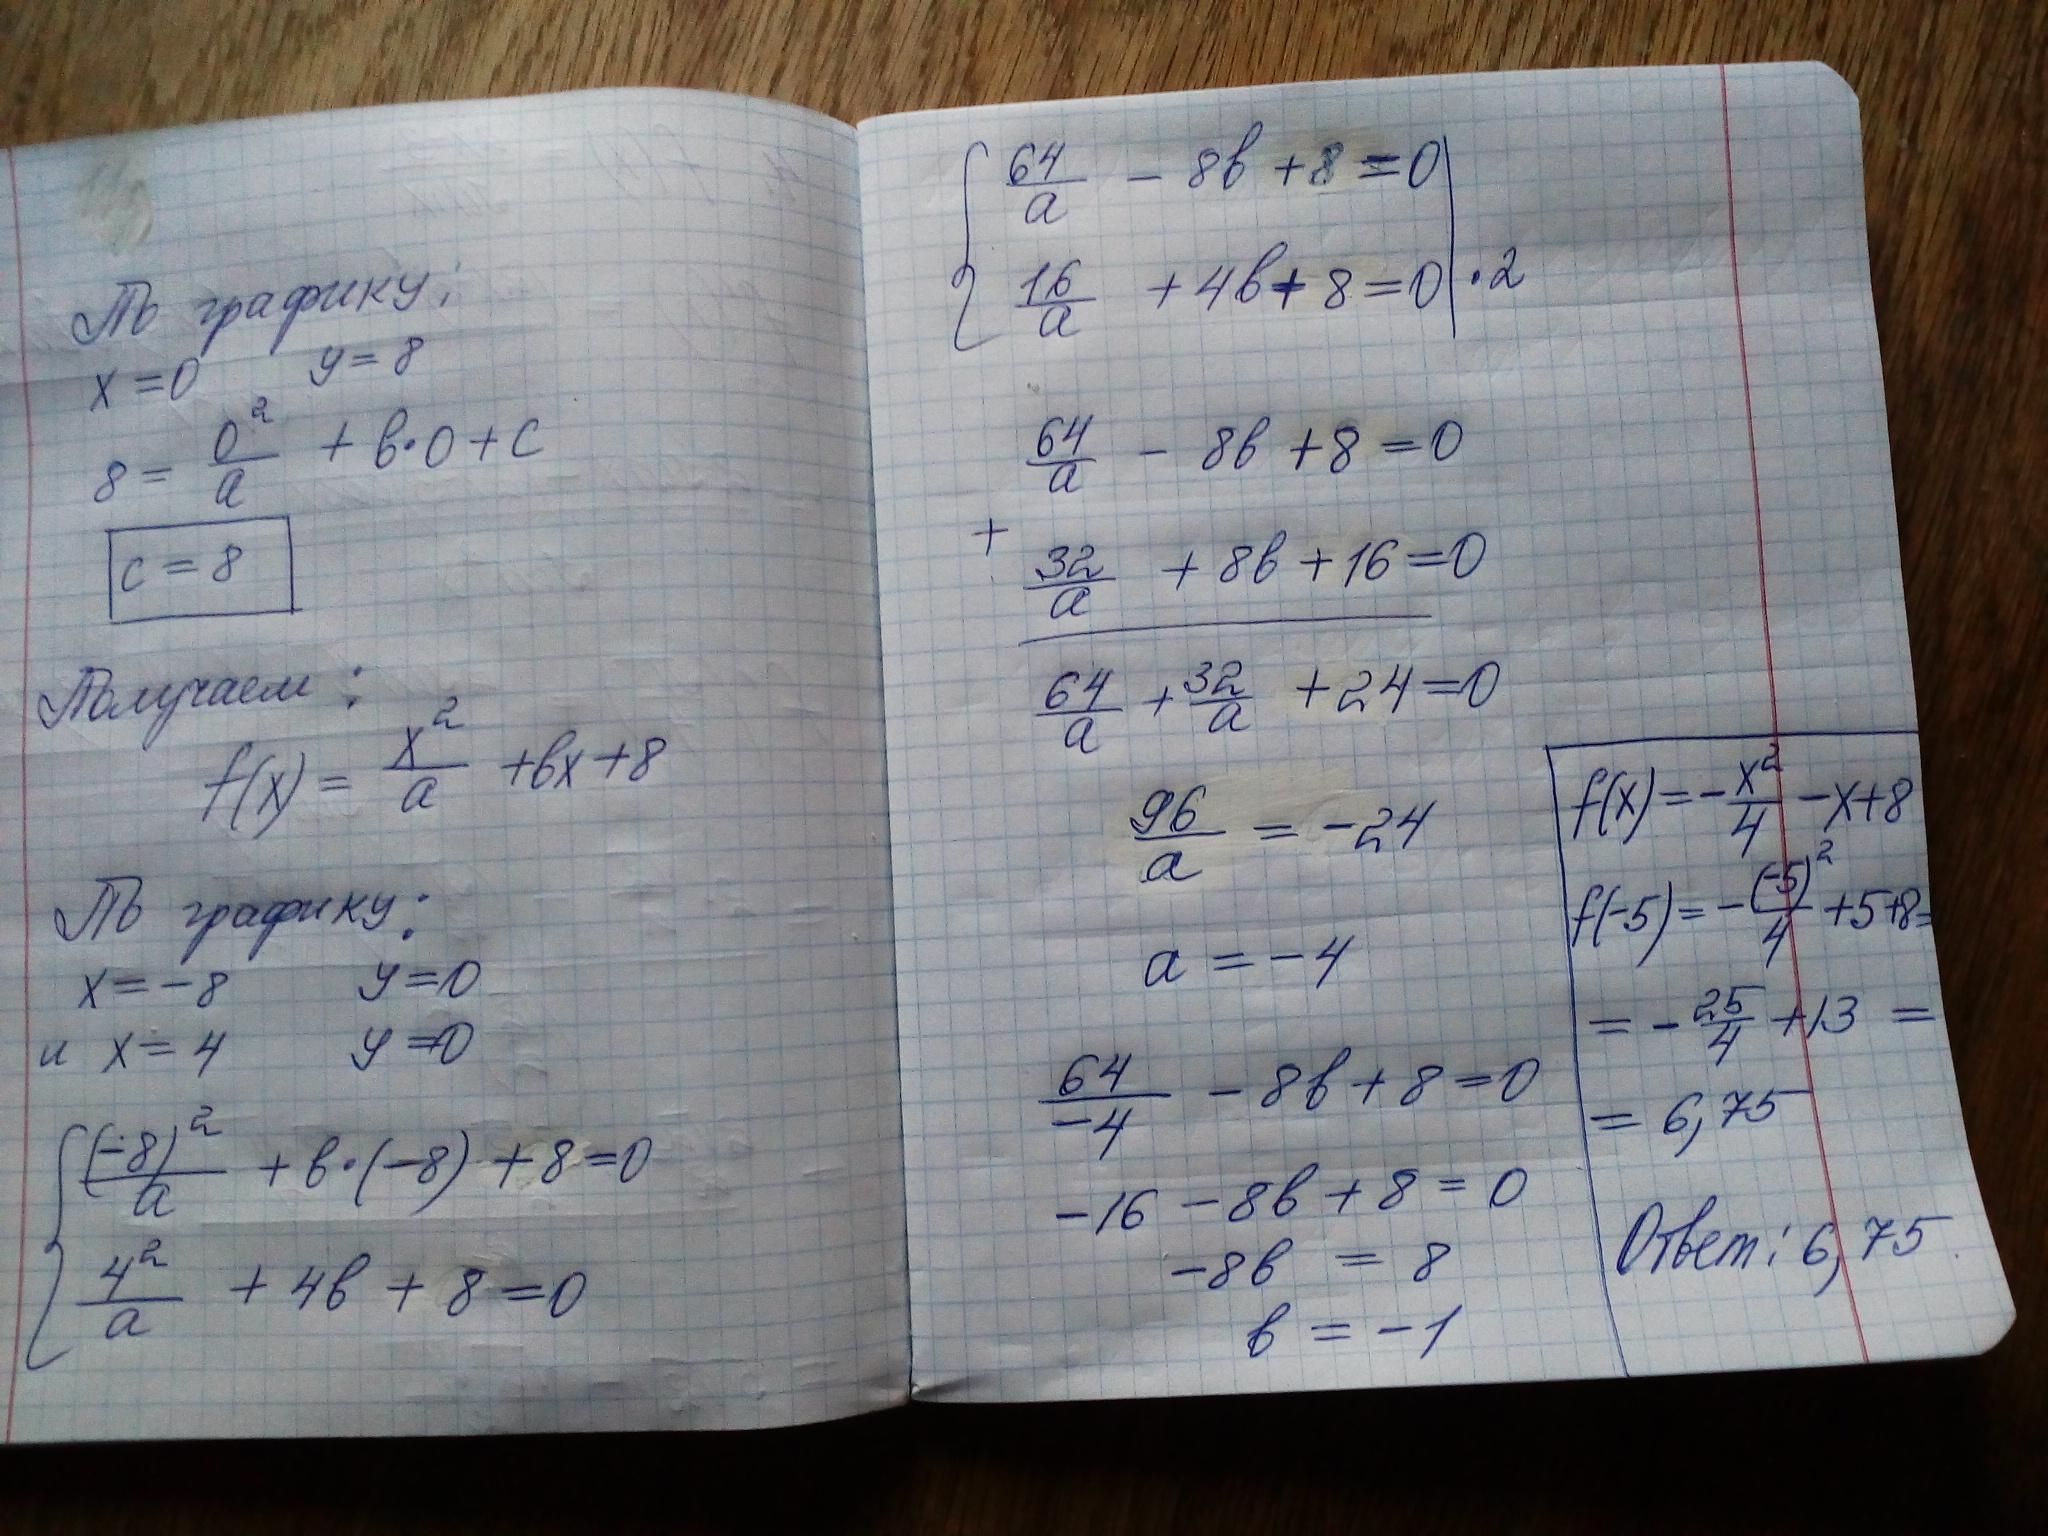 По графику:
x = 0 y = 8
8 = 0²/a + в·0 + c
c = 8
Получаем:
f(x) = x²/a + вx + 8
По графику:
x = -8 y = 0
и x = 4 y = 0
(-8)²/a + в·(-8) + 8 = 0
4²/a + 4в + 8 = 0
64/a - 8в + 8 = 0
16/a + 4в + 8 = 0 | ·2
64/a - 8в + 8 = 0
+
32/a + 8в + 16 = 0
64/a + 32/a + 24 = 0
96/a = -24
a = -4
64/-4 - 8в + 8 = 0
-16 - 8в + 8 = 0
-8в = 8
в = -1
f(x) = -x²/4 - x + 8
f(-5) = -(-5)²/4 + 5 + 8 =
= -25/4 + 13 =
= 6,75
Ответ: 6,75.